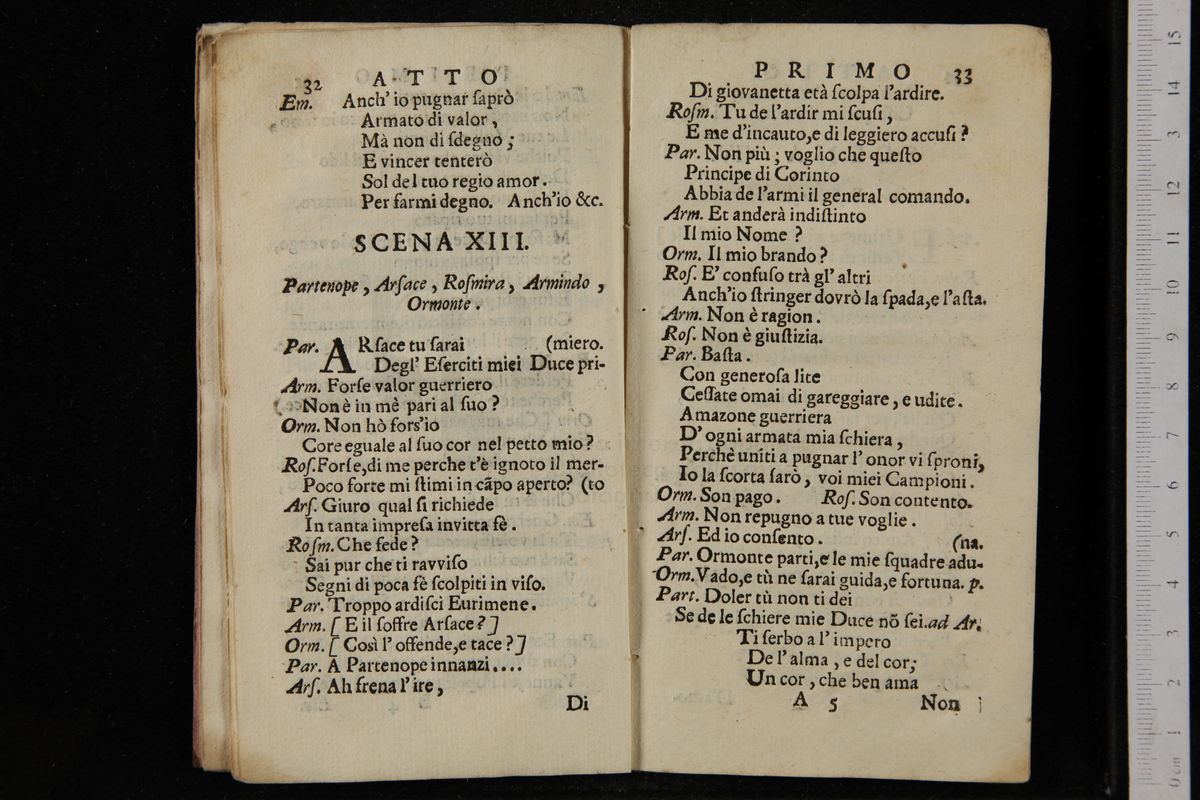 32 ATTO
Em. Anch' io pugnar ſaprò
Armato di valor,
Mà non di ſdegno;
E vincer tenterò
Sol del tuo regio amor.
Per farmi degno. Anch'io &c.
SCENA XIII.
Partenope, Arſace, Roſmira, Armindo,
Ormonte.
Par. ARſace tu ſarai (miero.
Degl' Eſerciti miei Duce pri-
Arm. Forſe valor guerriero
Non è in mè pari al ſuo?
Orm. Non hò fors'io
Core eguale al ſuo cor nel petto mio?
Roſ. Forſe, di me perche t'è ignoto il mer-
Poco forte mi ſtimi in cãpo aperto? (to
Arſ. Giuro qual ſi richiede
In tanta impreſa invitta fè.
Roſm. Che fede?
Sai pur che ti ravviſo
Segni di poca fè ſcolpiti in viſo.
Par. Troppo ardiſci Eurimene.
Arm. [E il ſoffre Arſace?]
Orm. [Così l' offende, e tace?]
Par. A Partenope innanzi....
Arſ. Ah frena l' ire,
Di
PRIMO 33
Di giovanetta età ſcolpa l'ardire.
Roſm. Tu de l'ardir mi ſcuſi,
E me d'incauto, e di leggiero accuſi?
Par. Non più; voglio che queſto
Principe di Corinto
Abbia de l'armi il general comando.
Arm. Et anderà indiſtinto
Il mio Nome?
Orm. Il mio brando?
Roſ. E' confuſo trà gl' altri
Anch'io ſtringer dovrò la ſpada, e l'aſta.
Arm. Non è ragion.
Roſ. Non è giuſtizia.
Par. Baſta.
Con generoſa lite
Ceſſate omai di gareggiare, e udite.
Amazone guerriera
D' ogni armata mia ſchiera,
Perchè uniti a pugnar l' onor vi ſproni,
Io la ſcorta ſarò, voi miei Campioni.
Orm. Son pago. Roſ. Son contento.
Arm. Non repugno a tue voglie.
Arſ. Ed io conſento. (na.
Par. Ormonte parti, e le mie ſquadre adu-
Orm. Vado, e tù ne ſarai guida, e fortuna. p.
Part. Doler tù non ti dei
Se de le ſchiere mie Duce nõ ſei. ad Ar.
Ti ſerbo a l' impero
De l' alma, e del cor;
Un cor, che ben ama
A 5 Non